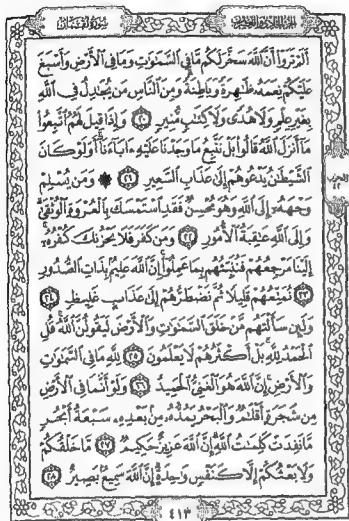 الجزء الحادي والعشرون سورة لقمان
ألم تروا أن الله سخر لكم ما في السموت وما في الأرض وأسبغ
عليكم نعمه ظهرة وباطنة ومن الناس من يجدل في الله
بغير علم ولا هدى ولا كتب منير ٢٠ وإذا قيل لهم اتبعوا
ما أنزل الله قالوا بل نتبع ما وجدنا عليه ءاباءنا أولو كان
الشيطن يدعوهم إلى عذاب السعير ٢١ ۞ ومن يسلم
وجهه إلى الله وهو محسن فقد استمسك بالعروة الوثقى
وإلى الله عقبة الأمور ٢٢ ومن كفر فلا يحزنك كفره
إلينا مرجعهم فننبئهم بما عملوا إن الله عليم بذات الصدور
٢٣ نمتعهم قليلا ثم نضطرهم إلى عذاب غليظ ٢٤
ولئن سألتهم من خلق السموت والأرض ليقولن الله قل
الحمد لله بل أكثرهم لا يعلمون ٢٥ لله ما في السموت
والأرض إن الله هو الغني الحميد ٢٦ ولو أنما في الأرض
من شجرة أقلم والبحر يمده من بعده سبعة أبحر
ما نفدت كلمت الله إن الله عزيز حكيم ٢٧ ما خلقكم
ولا بعثكم إلا كنفس وحدة إن الله سميع بصير ٢٨
الحزب
٤١٣